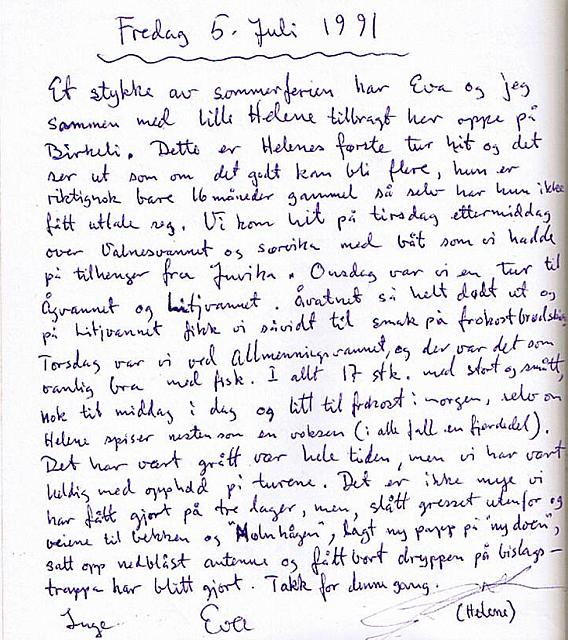 Fredag 5. Juli 1991
Et stykke av sommerferien har Eva og jeg
sammen med lille Helene tilbragt her oppe på
Birkeli. Dette er Helenes første tur hit og det
ser ut som om det godt kan bli flere, hun er
riktignok bare 16 måneder gammel så selv har hun ikke
fått uttale seg. Vi kom hit på tirsdag ettermiddag
over Valnesvannet og sørvika med båt som vi hadde
på tilhenger fra Juvika. Onsdag var vi en tur til
Åsvannet og Litjvannet. Åvatnet så helt dødt ut og
på Litjvannet fikk vi såvidt til smak på frokost
Torsdag var vi ved Allmenningsvannet, og der var det som
vanlig bra med fisk. I allt 17 stk. med stort og smått,
nok til middag i dag og litt til frokost i morgen, selv om
Helene spiser nesten som en voksen (i alle fall en fjerdedel).
Det har vært grått vær hele tiden, men vi har vært
heldig med opphold på turene. Det er ikke mye vi
har fått gjort på tre dager, men, slått gresset utenfor og
veiene til bekken og "Holmhågen", lagt ny papp på "nydoen",
satt opp nedblåst antenne og fått bort dryppen på bislag-
trappa har blitt gjort. Takk for denne gang.
Inge Eva (Helene)